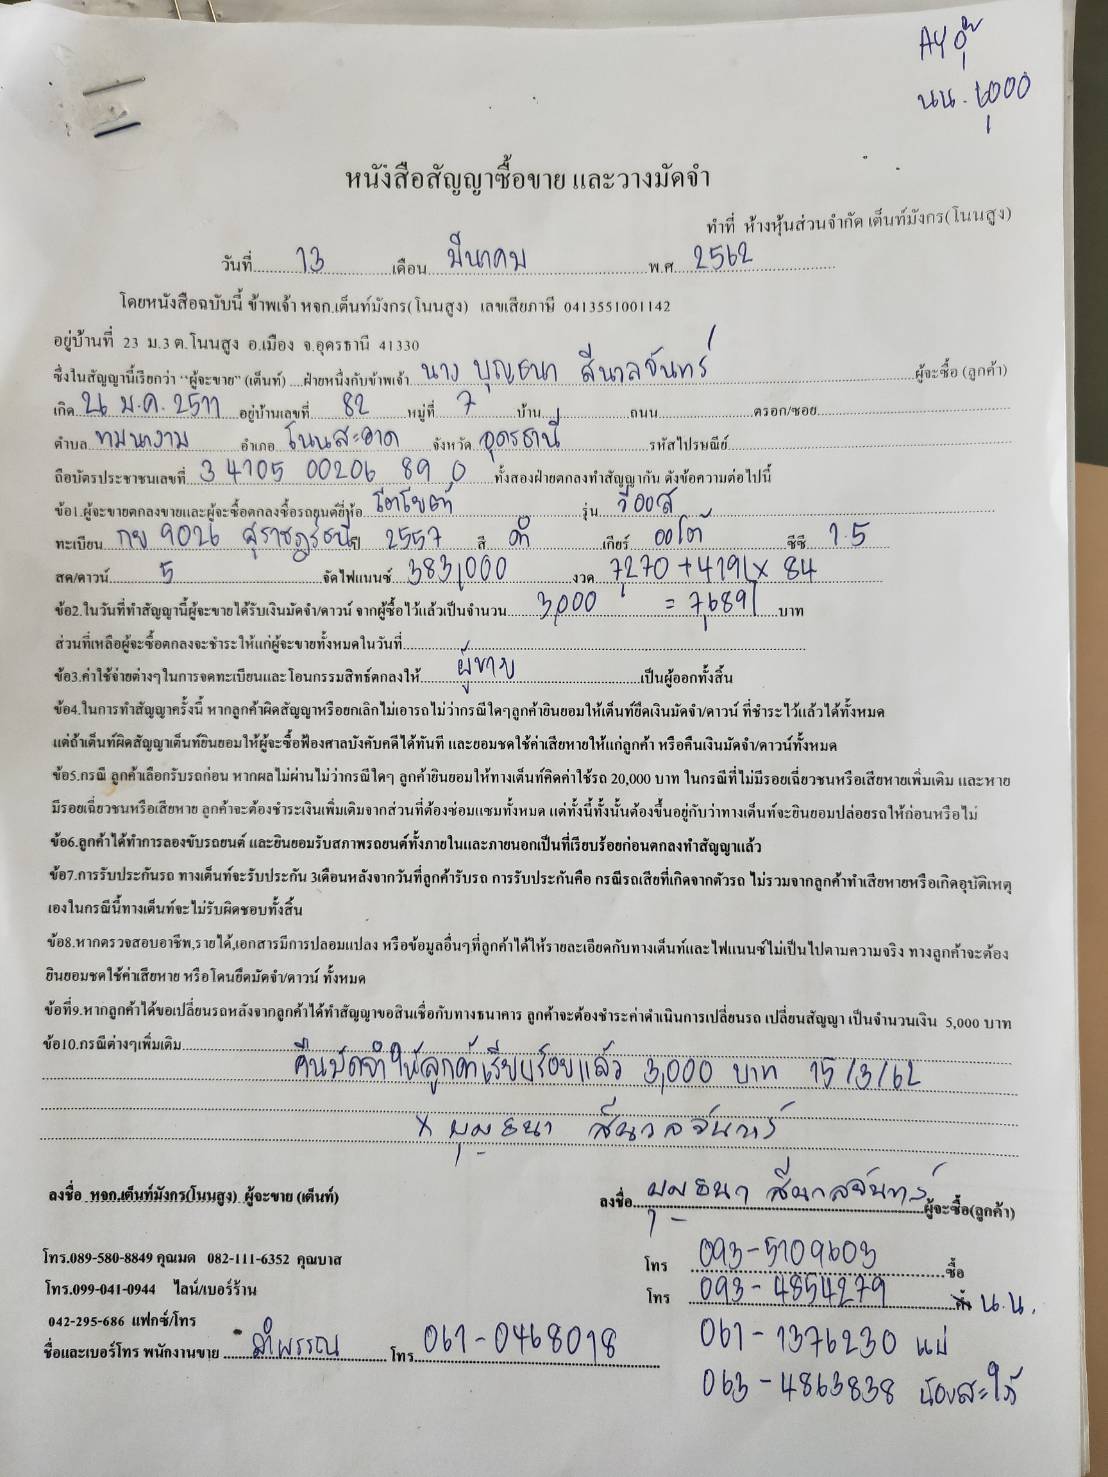 AY อุ๊
นน. 6,000
หนังสือสัญญาซื้อขาย และวางมัดจำ
ทำที่ ห้างหุ้นส่วนจำกัด เต็นท์มังกร(โนนสูง)
วันที่ 13 เดือน มีนาคม พ.ศ 2562
โดยหนังสือฉบับนี้ ข้าพเจ้า หจก.เต็นท์มังกร(โนนสูง) เลขเสียภาษี 0413551001142
อยู่บ้านที่ 23 ม.3 ต.โนนสูง อ.เมือง จ.อุดรธานี 41330
ซึ่งในสัญญานี้เรียกว่า “ผู้จะขาย” (เต็นท์) ....ฝ่ายหนึ่งกับข้าพเจ้า นาง บุญธนา สีนาลจันทร์ ผู้จะซื้อ (ลูกค้า)
เกิด 26 ม.ค. 2511 อยู่บ้านเลขที่ 82 หมู่ที่ 7 บ้าน ถนน ตรอก/ซอย
ตำบล ทมนางาม อำเภอ โนนสะอาด จังหวัด อุดรธานี รหัสไปรษณีย์
ถือบัตรประชาชนเลขที่ 3 4105 00206 89 0 ทั้งสองฝ่ายตกลงทำสัญญากัน ดังข้อความต่อไปนี้
ข้อ1.ผู้จะขายตกลงขายและผู้จะซื้อตกลงซื้อรถยนต์ยี่ห้อ โตโยต้า รุ่น วีออส
ทะเบียน กข 9026 สุราชฎร์ธนี ปี 2557 สี ดำ เกียร์ ออโต้ ซีซี 1.5
สด/ดาวน์ 5 จัดไฟแนนซ์ 383,000 งวด 7,270 + 419 x 84
ข้อ2.ในวันที่ทำสัญญานี้ผู้จะขายได้รับเงินมัดจำ/ดาวน์ จากผู้ซื้อไว้แล้วเป็นจำนวน 3,000 = 7,689 บาท
ส่วนที่เหลือผู้จะซื้อตกลงจะชำระให้แก่ผู้จะขายทั้งหมดในวันที่
ข้อ3.ค่าใช้จ่ายต่างๆในการจดทะเบียนและโอนกรรมสิทธ์ตกลงให้ ผู้ขาย เป็นผู้ออกทั้งสิ้น
ข้อ4.ในการทำสัญญาครั้งนี้ หากลูกค้าผิดสัญญาหรือยกเลิกไม่เอารถไม่ว่ากรณีใดๆลูกค้ายินยอมให้เต็นท์ยึดเงินมัดจำ/ดาวน์ ที่ชำระไว้แล้วได้ทั้งหมด
แต่ถ้าเต็นท์ผิดสัญญาเต็นท์ยินยอมให้ผู้จะซื้อฟ้องศาลบังคับคดีได้ทันที และยอมชดใช้ค่าเสียหายให้แก่ลูกค้า หรือคืนเงินมัดจำ/ดาวน์ทั้งหมด
ข้อ5.กรณี ลูกค้าเลือกรับรถก่อน หากผลไม่ผ่านไม่ว่ากรณีใดๆ ลูกค้ายินยอมให้ทางเต็นท์คิดค่าใช้รถ 20,000 บาท ในกรณีที่ไม่มีรอยเฉี่ยวชนหรือเสียหายเพิ่มเติม และหาย
มีรอยเฉี่ยวชนหรือเสียหาย ลูกค้าจะต้องชำระเงินเพิ่มเติมจากส่วนที่ต้องซ่อมแซมทั้งหมด แต่ทั้งนี้ทั้งนั้นต้องขึ้นอยู่กับว่าทางเต็นท์จะยินยอมปล่อยรถให้ก่อนหรือไม่
ข้อ6.ลูกค้าได้ทำการลองขับรถยนต์ และยินยอมรับสภาพรถยนต์ทั้งภายในและภายนอกเป็นที่เรียบร้อยก่อนตกลงทำสัญญาแล้ว
ข้อ7.การรับประกันรถ ทางเต็นท์จะรับประกัน 3เดือนหลังจากวันที่ลูกค้ารับรถ การรับประกันคือ กรณีรถเสียที่เกิดจากตัวรถ ไม่รวมจากลูกค้าทำเสียหายหรือเกิดอุบัติเหตุ
เองในกรณีนี้ทางเต็นท์จะไม่รับผิดชอบทั้งสิ้น
ข้อ8.หากตรวจสอบอาชีพ,รายได้,เอกสารมีการปลอมแปลง หรือข้อมูลอื่นๆที่ลูกค้าได้ให้รายละเอียดกับทางเต็นท์และไฟแนนซ์ไม่เป็นไปตามความจริง ทางลูกค้าจะต้อง
ยินยอมชดใช้ค่าเสียหาย หรือโดนยึดมัดจำ/ดาวน์ ทั้งหมด
ข้อที่9.หากลูกค้าได้ขอเปลี่ยนรถหลังจากลูกค้าได้ทำสัญญาขอสินเชื่อกับทางธนาคาร ลูกค้าจะต้องชำระค่าดำเนินการเปลี่ยนรถ เปลี่ยนสัญญา เป็นจำนวนเงิน 5,000 บาท
ข้อ10.กรณีต่างๆเพิ่มเติม
คืนมัดจำให้ลูกค้าเรียบร้อยแล้ว 3,000 บาท 15/3/62
x บุญธนา สีนวลจันทร์
ลงชื่อ หจก.เต็นท์มังกร(โนนสูง) ผู้จะขาย (เต็นท์) ลงชื่อ บุญธนา สีนาลจันทร์ ผู้จะซื้อ(ลูกค้า)
โทร.089-580-8849 คุณมด 082-111-6352 คุณบาส โทร 093-5109603 ซื้อ
โทร.099-041-0944 ไลน์/เบอร์ร้าน โทร 093-4854279 น.น.
042-295-686 แฟกซ์/โทร
ชื่อและเบอร์โทร พนักงานขาย ลำพรรณ โทร 061-0468018 061-1376230 แม่
063-4863838 น้องสะใภ้